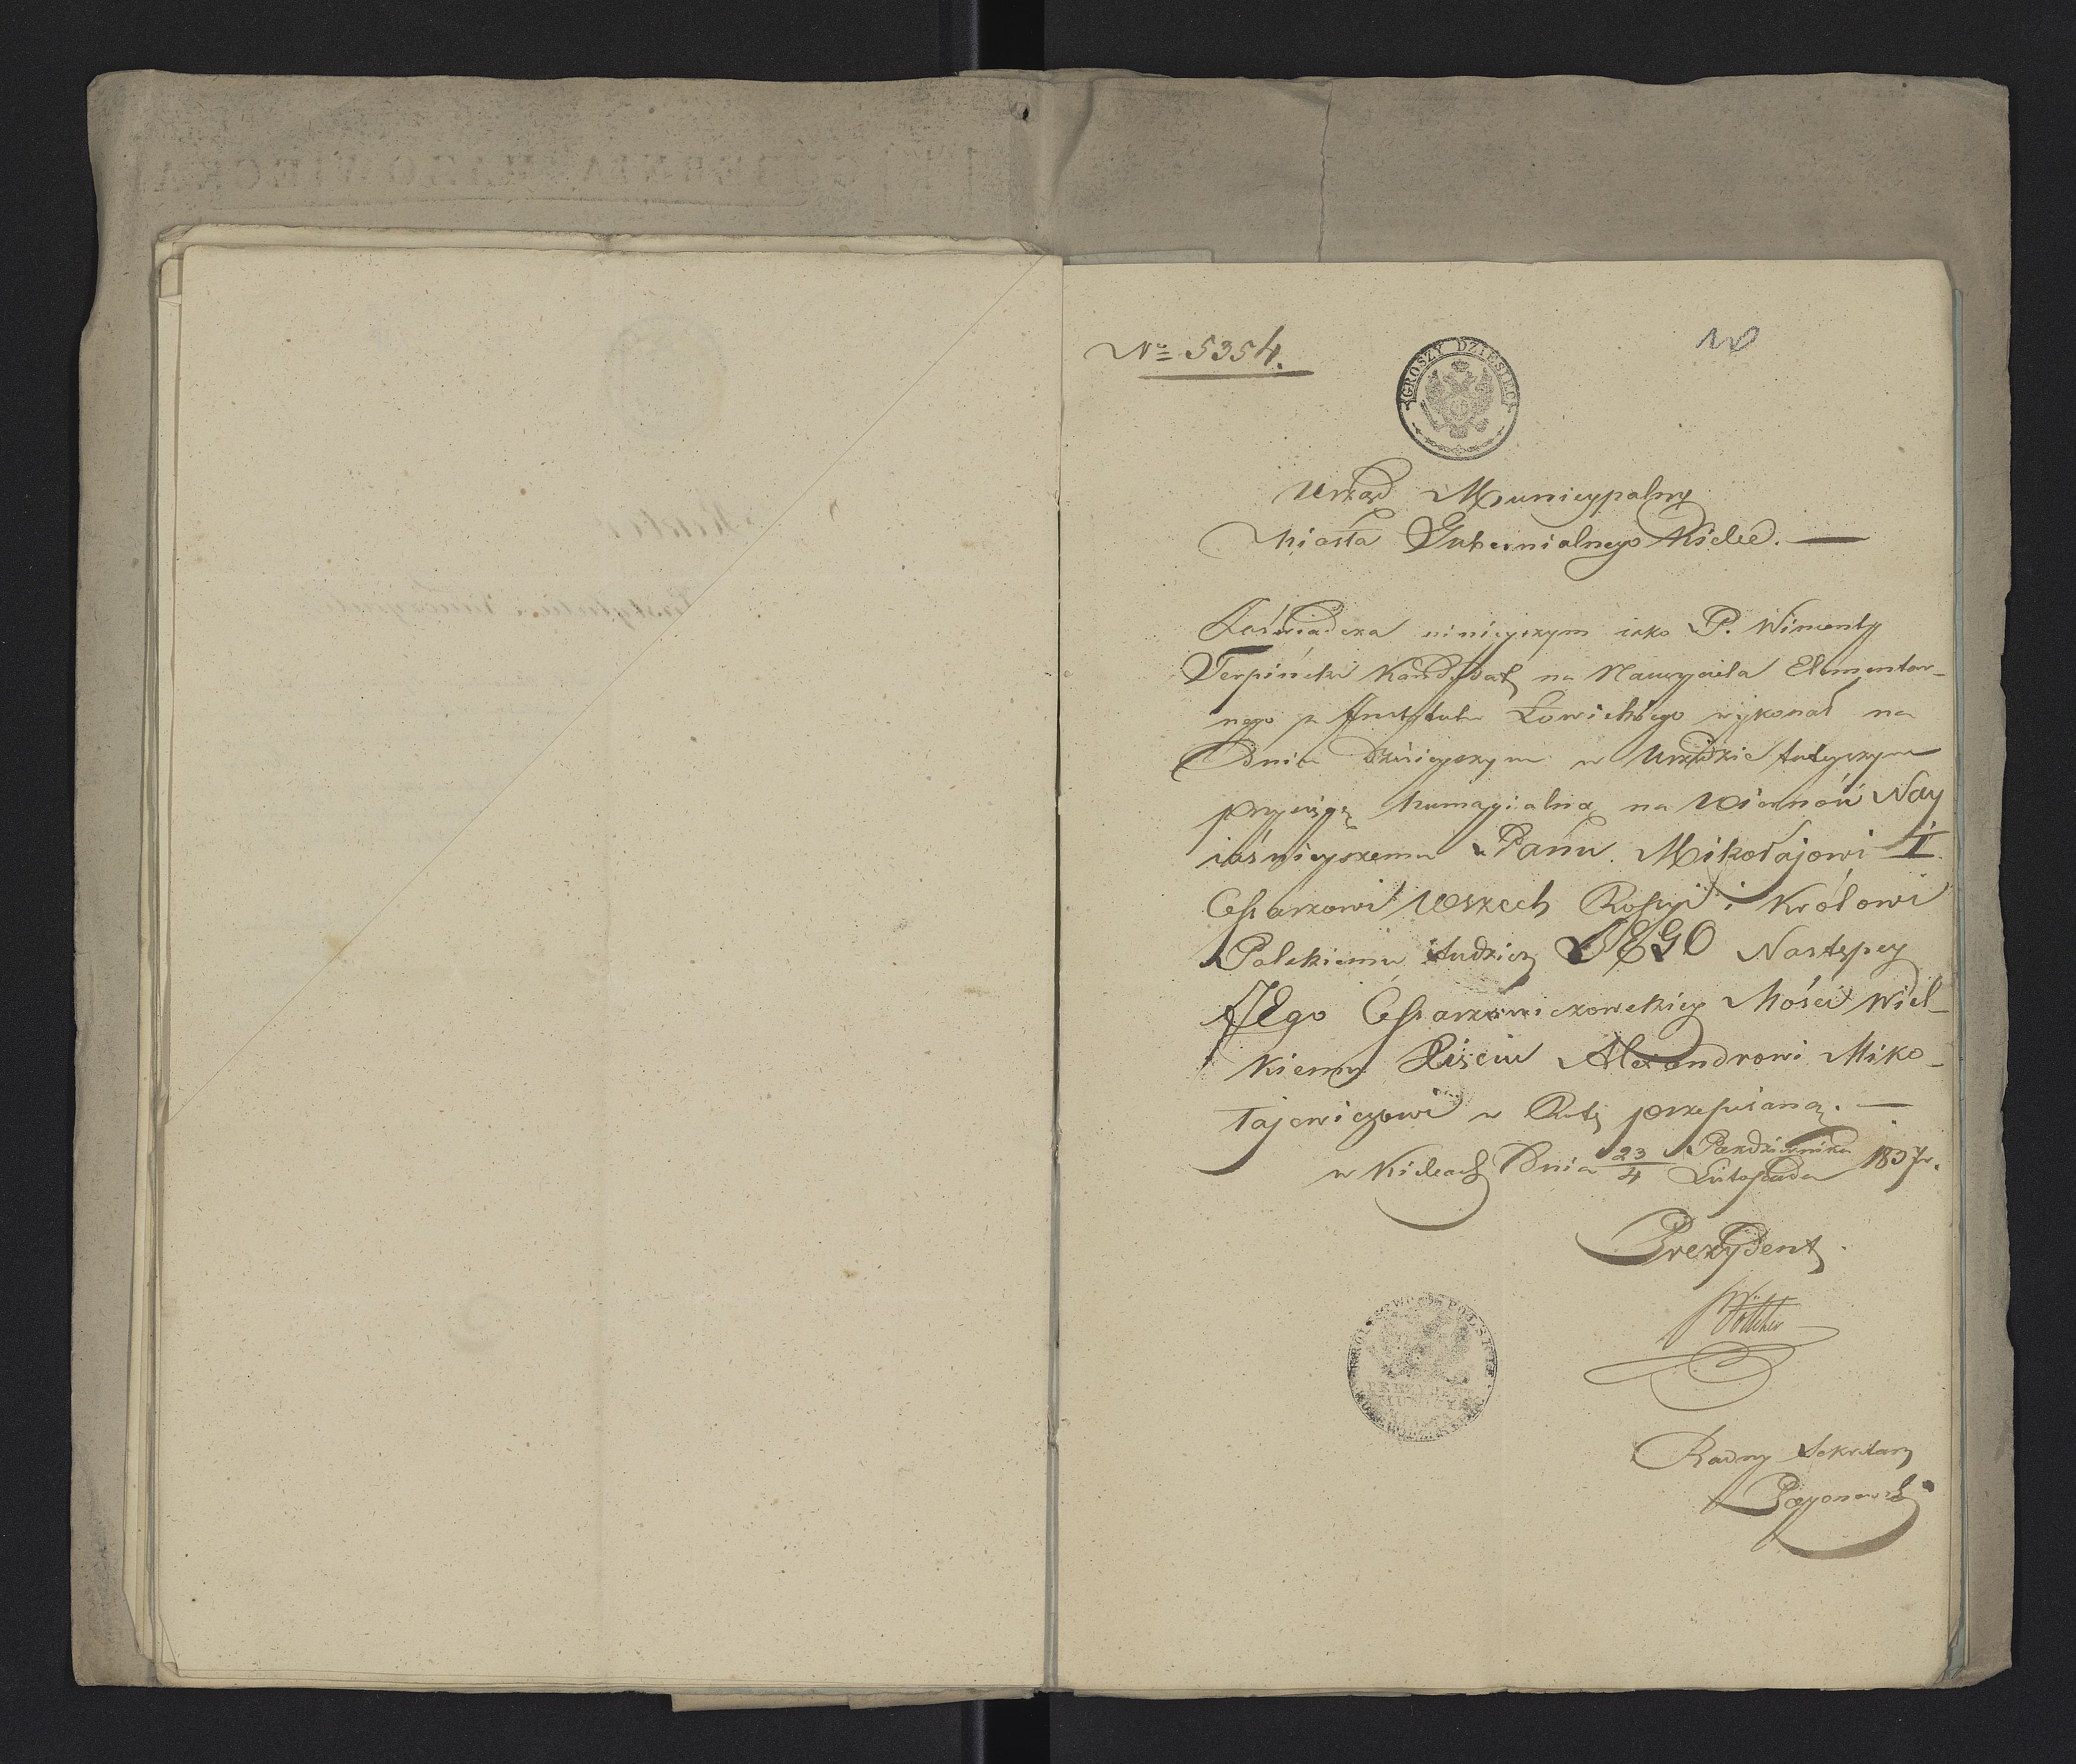 Nº 5354.
10
GROSZY DZIESIĘĆ
Urząd Municypalny
Miasta Gubernialnego Kielce. —
Zaświadcza ninieyszym iako P. Wincenty
Terpiński Kandydat na Nauczyciela Elementar-
nego z Instytutu Łowickiego wykonał na
Dniu dzisieyszym w Urzędzie tuteyszym
przysięgę homagialną na Wierność Nay
iaśnieyszemu Panu Mikołajowi I.
Cesarzowi Wszech Rossyi i Królowi
Polskiemu, tudzież JEGO Następcy
JEgo Cesarzewiczowskiey Mości Wiel-
kiemu Xięciu Alexandrowi Miko-
łajewiczowi w Rotę przepisaną. —
w Kielcach Dnia 23/4 Października/Listopada 1837 r.
Prezydent
Radny Sekretarz